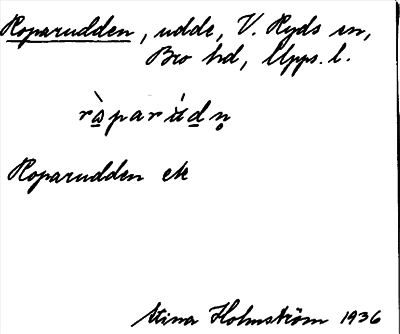 Roparudden, udde, V. Ryds sn,
Bro hd, Upps. l.
ròparúdn̥
Roparudden ek
Stina Holmström 1936